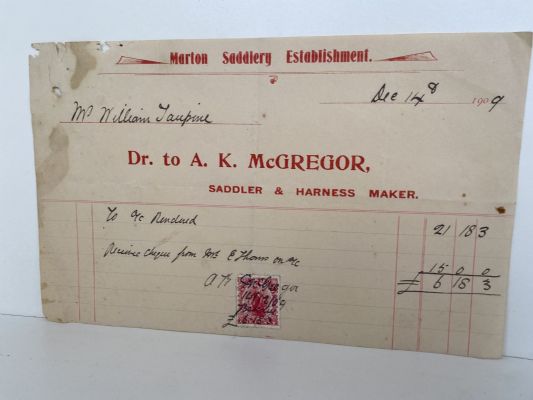 Marton Saddlery Establishment.
Dec 14th 1909
Mr William
Dr. to A. K. McGREGOR,
SADDLER & HARNESS MAKER.
To a/c Rendered 21 18 3
Received cheque from Mr E Thomas on a/c 15 0 0
£ 6 18 3
A K McGregor
14/12/09
£6.18.3